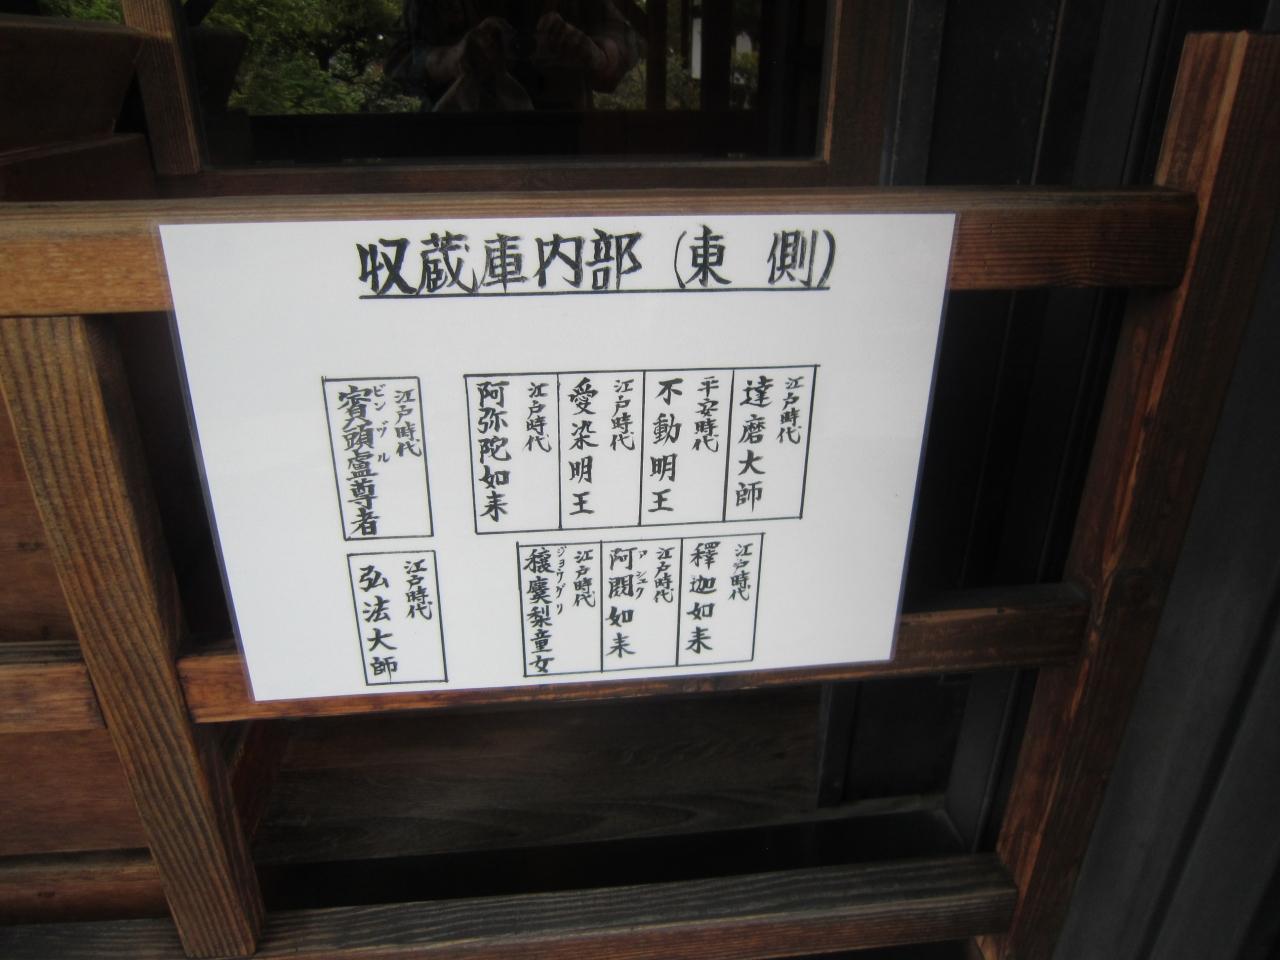 収蔵庫内部（東　側）
江戸時代
達磨大師
平安時代
不動明王
江戸時代
愛染明王
江戸時代
阿弥陀如来
江戸時代
賓頭盧尊者
ビンヅル
江戸時代
釋迦如来
江戸時代
阿閦如来
アシュク
江戸時代
穣麌梨童女
ジョウグリ
江戸時代
弘法大師